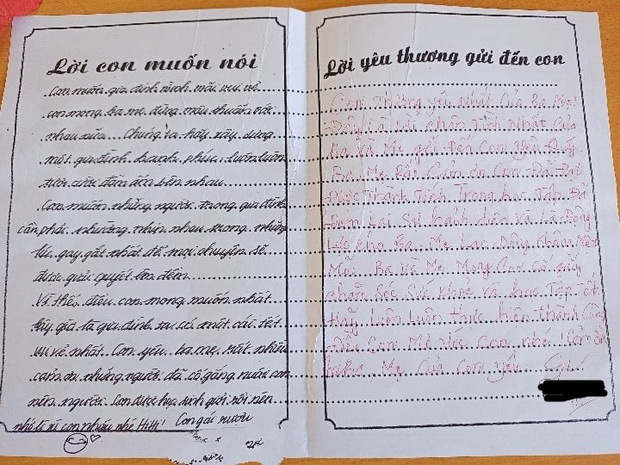 Lời con muốn nói
Con muốn gia đình mình mãi vui vẻ
con mong ba mẹ đừng mâu thuẫn với
nhau nữa. Chúng ta hãy xây dựng
một gia đình hạnh phúc luôn luôn
tươi cười đầm ấm bên nhau
Con muốn những người trong gia đình
cần phải nhường nhịn nhau trong những
lúc gay gắt nhất để mọi chuyện sẽ
được giải quyết êm đềm
Vì thế, điều con mong muốn nhất
bây giờ là gia đình ta có một cái tết
vui vẻ nhất. Con yêu ba mẹ rất nhiều
cảm ơn những người đã cố gắng nuôi con
nên người. Con được học sinh giỏi rồi nên
nhớ lì xì con nhiều nhé HiHi!
Con gái rượu
Lời yêu thương gửi đến con
Con thương yêu nhất của Ba Mẹ!
Đây là lời chân tình nhất của
Ba và Mẹ gửi đến con yêu
Ba, Mẹ Rất Cảm ơn Con Đã Đạt
Được Thành Tích Trong học Tập. Đã
Đem Lại Sự hạnh diện và Là Động
Lực cho Ba, Mẹ Lao Động
Ba Và Mẹ Mong Con Cố gắng
chăm Sóc Sức khoẻ và học Tập Tốt
Hãy Luôn Luôn thực hiện thành Công
điều Con Mơ ước Con nhé!
Mẹ Của Con Yêu